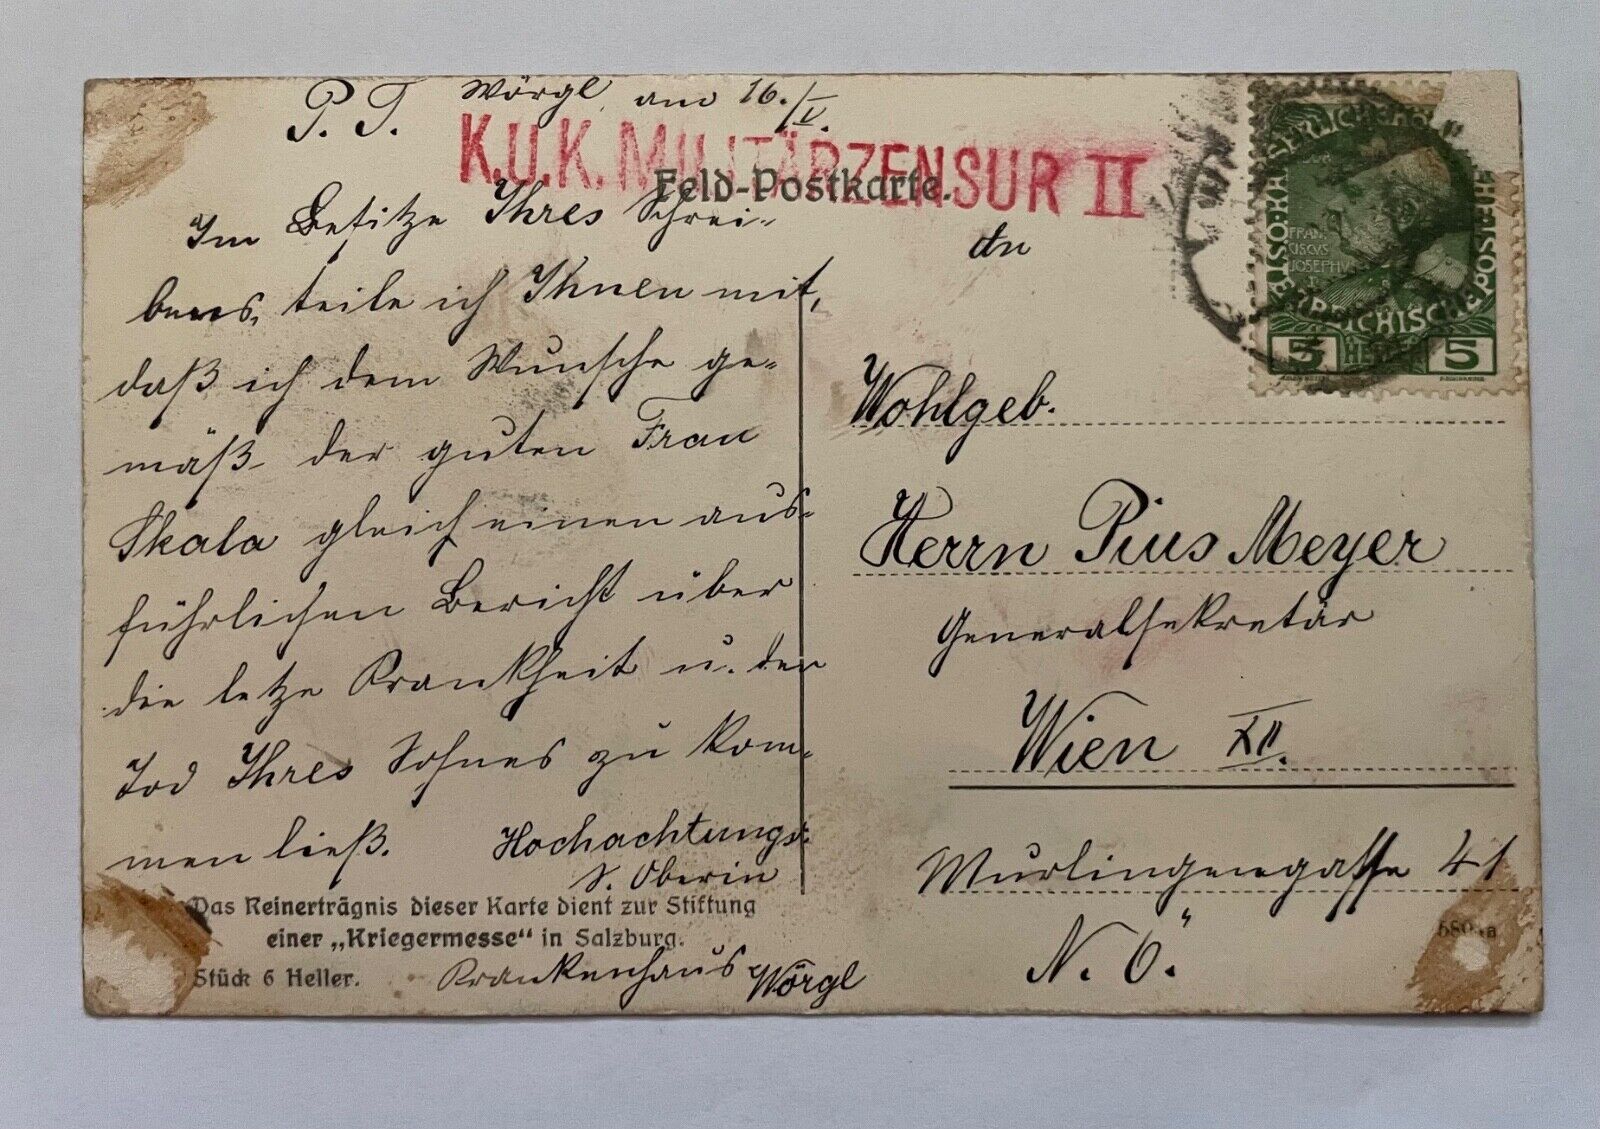 P. T. Wörgl, am 16./V.
K.U.K. MILITÄRZENSUR II
Feld-Postkarte.
Im Besitze Ihres Schrei-
bens, teile ich Ihnen mit,
daß ich dem Wunsche ge-
mäß der guten Frau
Skala gleich einen aus-
führlichen Bericht über
die letze Krankheit u. den
Tod Ihres Sohnes zu kom-
men ließ. Hochachtungs:
S. Oberin
Das Reinerträgnis dieser Karte dient zur Stiftung
einer „Kriegermesse" in Salzburg.
Stück 6 Heller.
Krankenhaus Wörgl
An
Wohlgeb.
Herrn Pius Meyer
Generalsekretär
Wien XII.
Wurlingergasse 41
N. Ö.
KAISERLICHE KÖNIGLICHE
ÖSTERREICHISCHE POST
FRAN
CISCVS
JOSEPHVS
5 HELLER 5